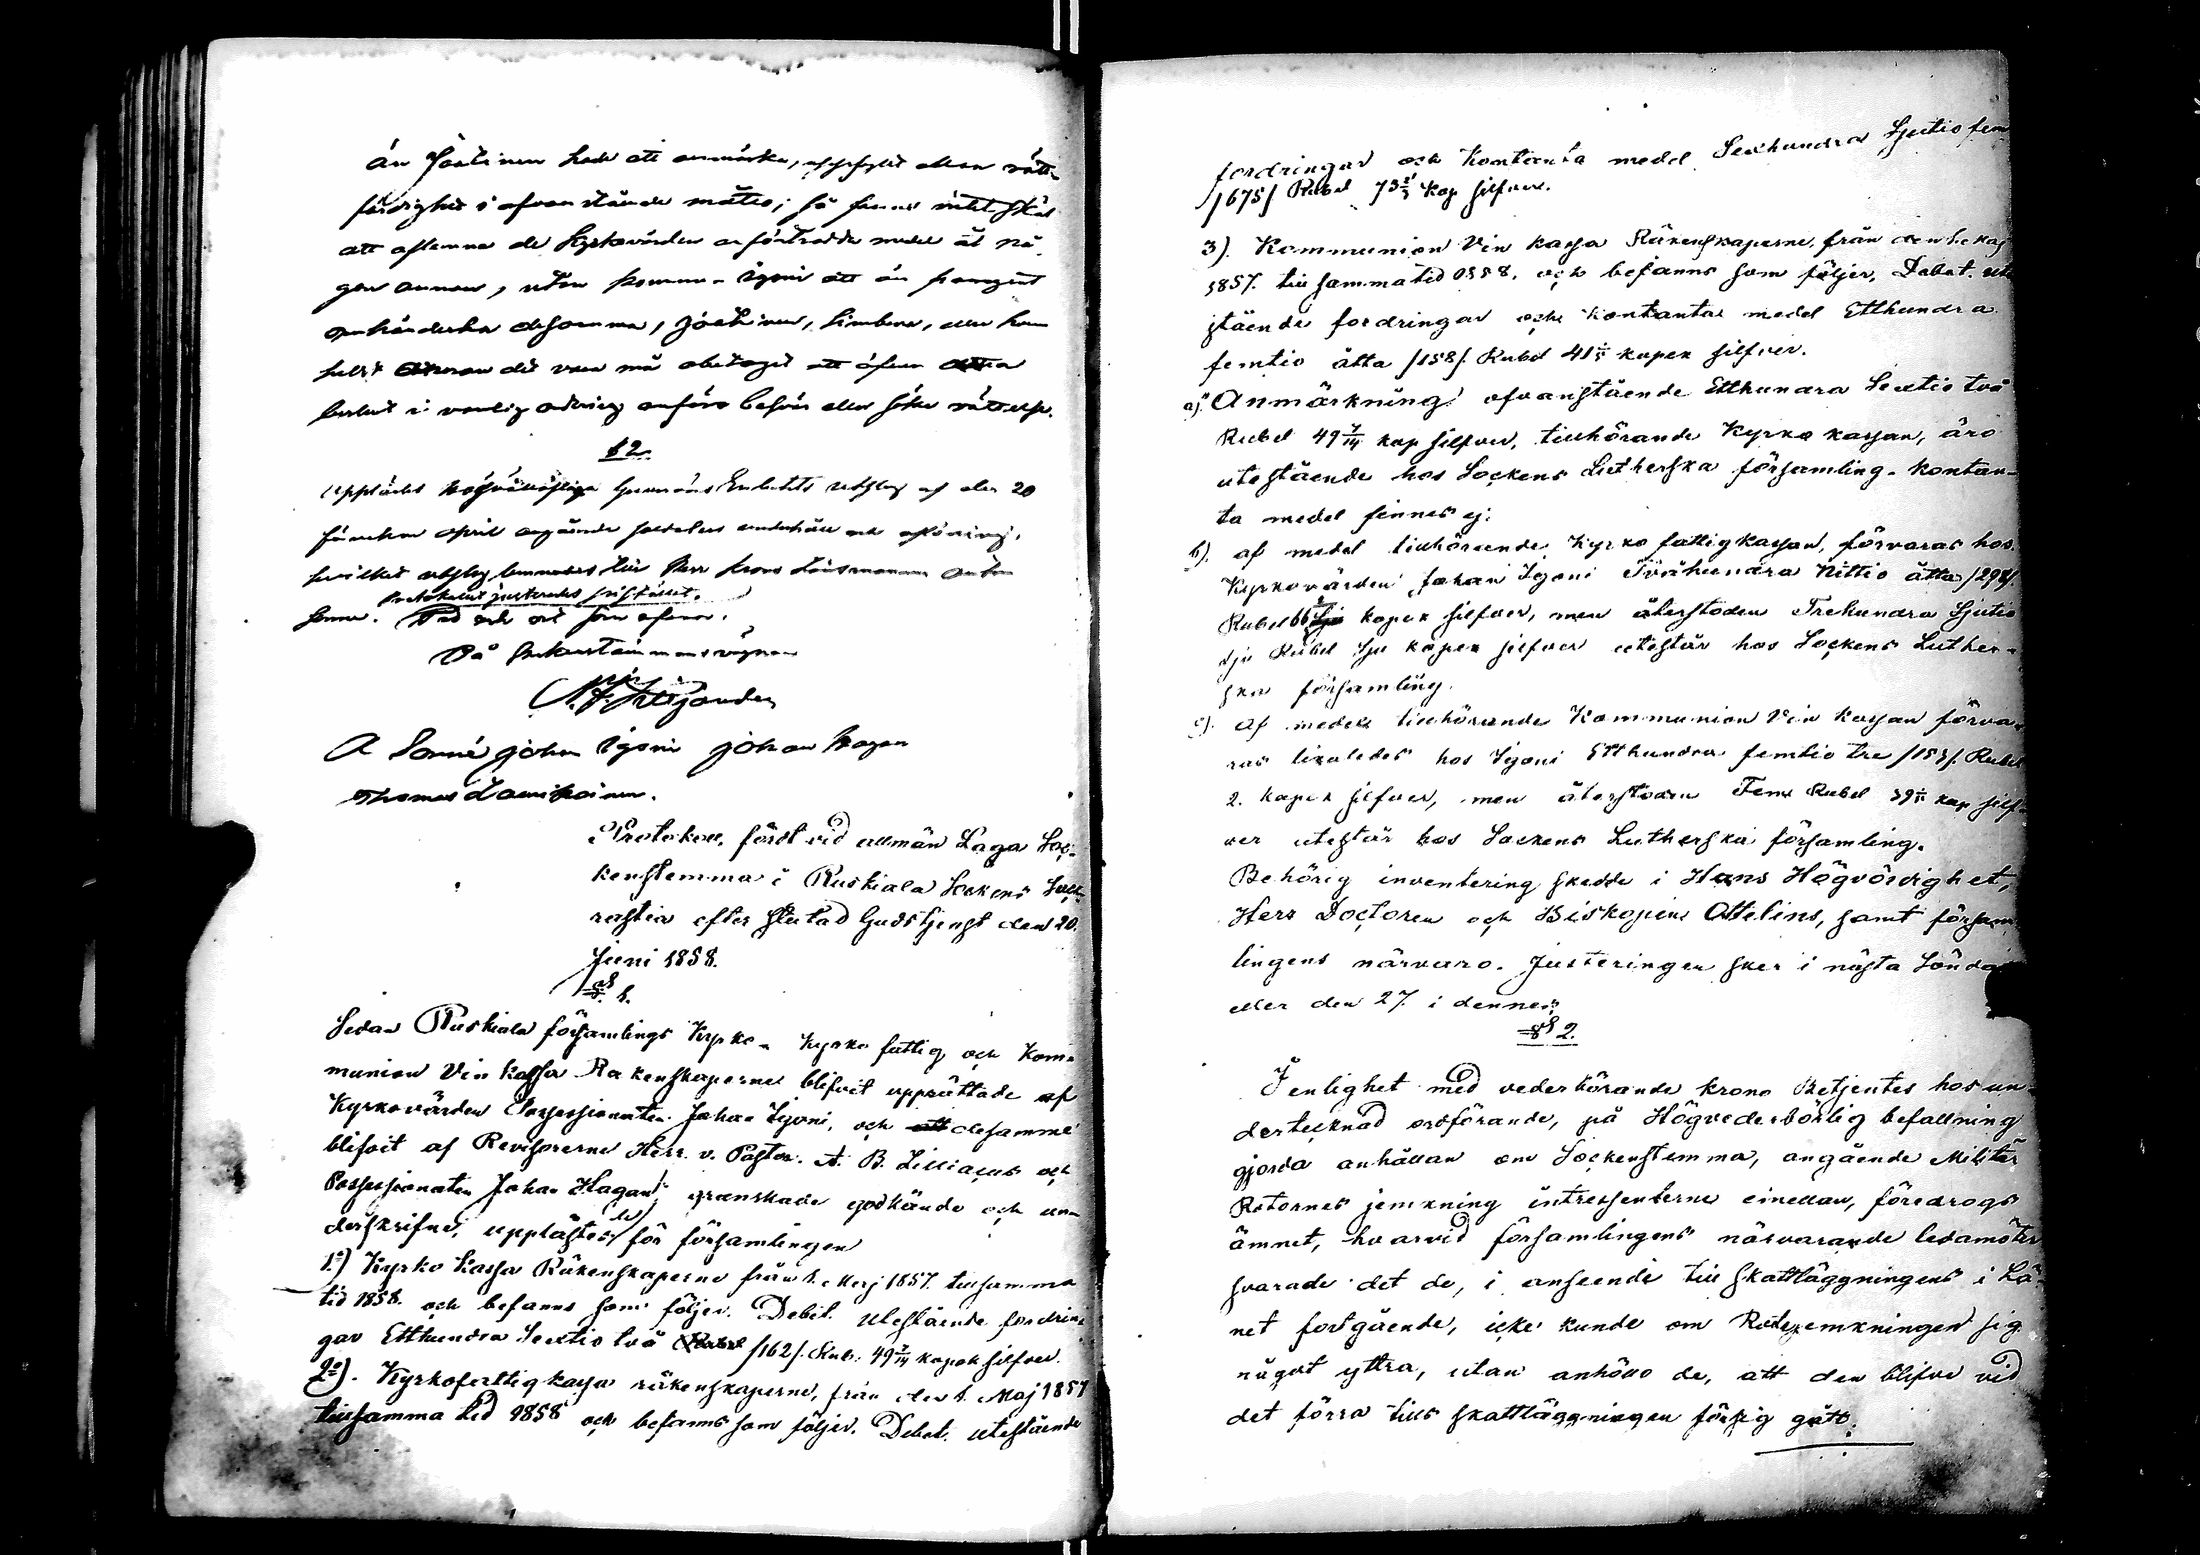 än Joutinen hade att anmärka, uppfyllt all rätt-
färdighet i ofvanstående måtto; så finnes intet skäl
att aflemna de Kyrkovärden anförtrodda medel åt nå-
gon annan, utom Igoni att än framgent
omhänderha desamma, Joutinen, Simbere, eller hvem
helst det vara må obetaget att öfver detta
beslut i vanlig ordning anföra besvär eller söka rättelse.
§ 2.
Upplästes Guvernörs Embetets utslag af den 20
sistledne april angående soldaters underhåll och aflöning,
hvilket utslag lemnades till Herr Krono Länsmannen Anton
Protokollet justerades på stället.
Sonne. Tid och ort som ofvan.
På Sockenstämmans vägnar
A Sonné johan Igoni johan Hagan
Thomas Laurikainen.
Protokoll, fördt vid allmän Laga Soc-
kenstemma i Ruskiala Sockens Sack-
rastia efter slutad Gudstjenst den 20.
Juni 1858.
§ 1.
Sedan Ruskiala församlings Kyrko- Kyrko fattig och Kom-
munion Vin kassa Räkenskaperne blifvit upprättade af
Kyrkovärden Possessionaten Johan Igoni, och att desamme
blifvit af Revisorerne Herr v. Pastor A. B. Lilliacus och
Possessionaten Johan Hagan; granskade godkände och un-
derskrifne, upplästes de för församlingen
1:o) Kyrko Kassa Räkenskaperne från 1. Maj 1857. till samma
tid 1858. och befanns som följer. Debit. utestående fordrin-
gar Etthundra Sextio två Rubel /162/. Rub. 49 7/14 kopek silfver.
2:o). Kyrkofattigkassa räkenskaperne, från den 1. Maj 1857
till samma tid 1858 och befanns som följer. Debet. utestående
fordringar och Kontanta medel Sexhundra Sjutiofem
/675/ Rubel 73 2/7 Kop silfver.
3). Kommunion Vin kassa Räkenskaperne, från den 1:e Maj
1857. till samma tid 1858. och befanns som följer, Debet. ute-
stående fordringar och kontanta medel Etthundra
femtio åtta /158/. Rubel 41 kopek silfver.
a). Anmärkning! ofvanstående Etthundra Sextio två
Rubel 49 7/14 kop silfver, tillhörande Kyrko kassan, äro
utestående hos Sockens Lutherska församling. kontan-
ta medel finnes ej.
b). af medel tillhörande Kyrko fattigkassan, förvaras hos
Kyrkovärden Johan Igoni Tvåhundra Nittio åtta /298/.
Rubel 66 kopek silfver, men återstoden Trehundra Sjutio
sju Rubel Sju kopek silfver utestår hos Sockens Luther-
ska församling.
c). af medel tillhörande Kommunion Vin kassan förva-
ras likaledes hos Igoni Etthundra femtio tre /153/. Rubel
2. kopek silfver, men återstoden Fem Rubel 39 kop silf-
ver utestår hos Sockens Lutherska församling.
Behörig inventering skedde i Hans Högvördighet,
Herr Doctoren och Biskopens Ottelins, samt försam-
lingens närvaro. Justeringen sker i nästa Söndag
eller den 27. i dennes.
§ 2.
I enlighet med vederbörande krono Betjentes hos un-
dertecknad ordförande, på Högvederbörlig befallning
gjorda anhållan om Sockenstemma, angående Militär
Rotornes jemkning intressenterne emellan, föredrogs
ämnet, hvarvid församlingens närvarande ledamöter
svarade det de, i anseende till skattläggningens i Lä-
net fortgående, icke kunde om Rotejemkningen sig
något yttra, utan anhöllo de, att den blifve vid
det förra tills skattläggningen försig gått.